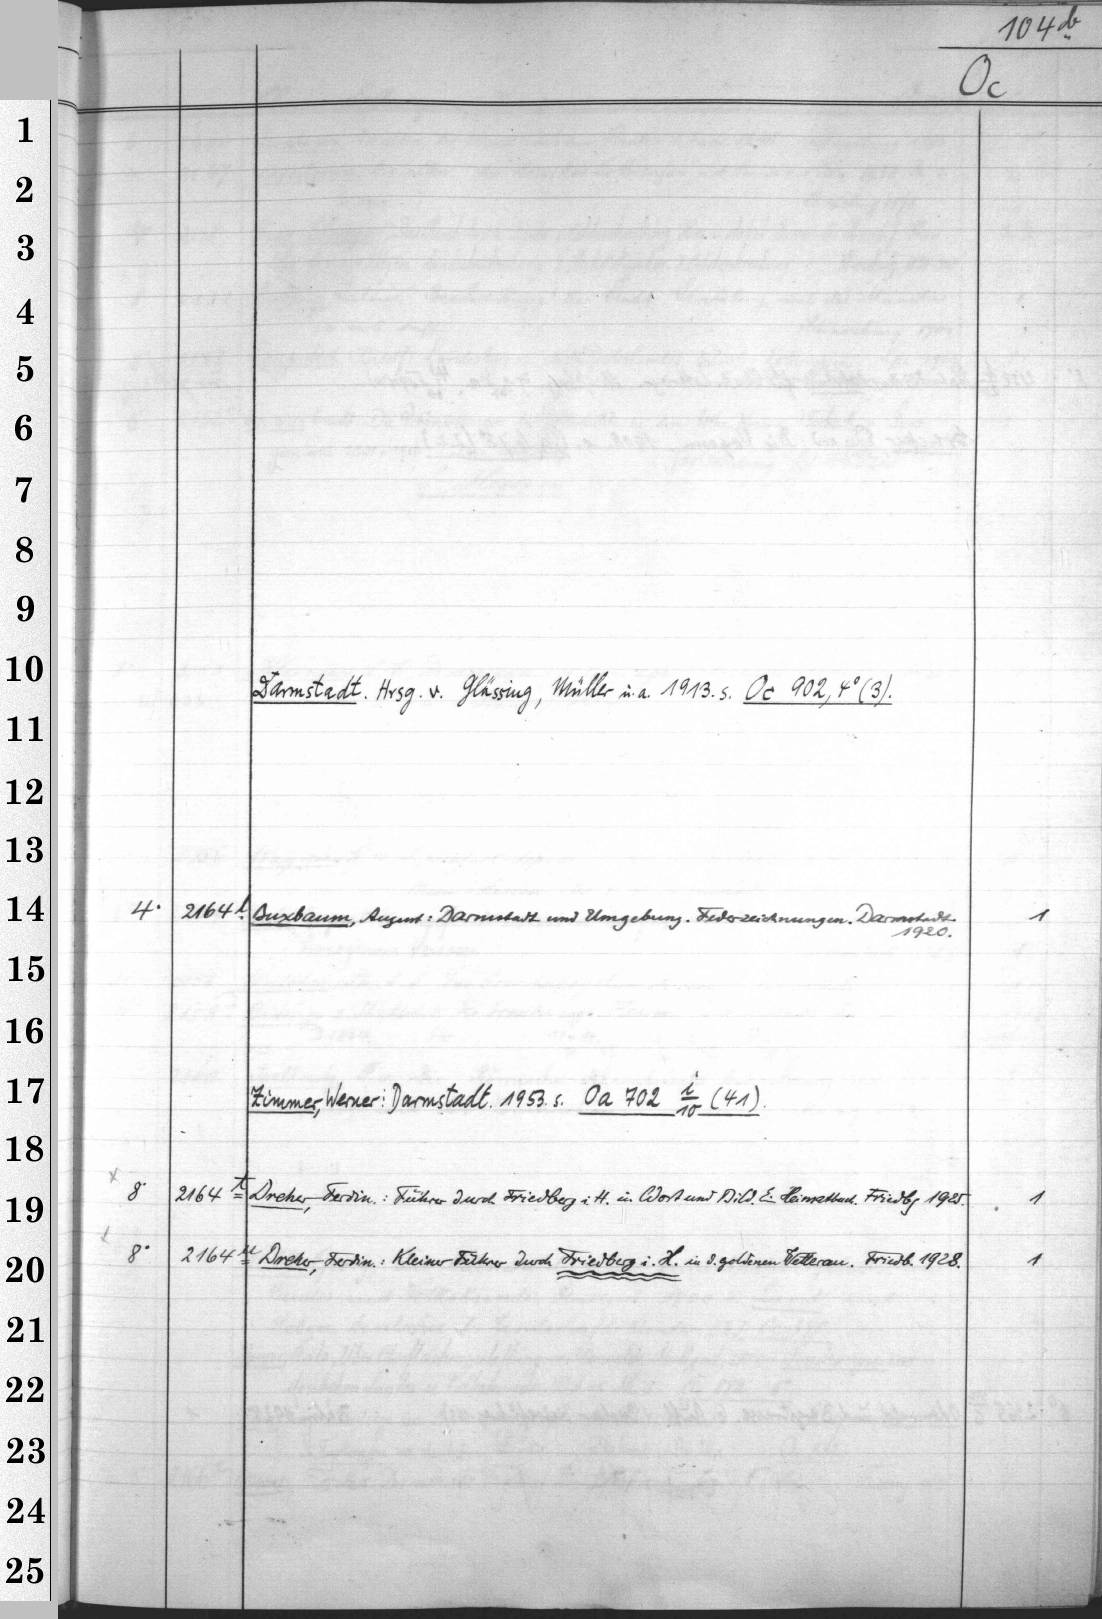 104 b
Oc
1
2
3
4
5
6
7
8
9
10
Darmstadt. Hrsg. v. Glässing, Müller u. a. 1913. s. Oc 902, 4° (3).
11
12
13
14
4° 2164 l Buxbaum, August: Darmstadt und Umgebung. Federzeichnungen. Darmstadt 1
1920.
15
16
17
Zimmer, Werner: Darmstadt. 1953. s. Oa 702 i/10 (41).
18
19
8° 2164 t Dreher, Ferdin.: Führer durch Friedberg i. H. in Wort und Bild. Friedbg 1925. 1
20
8° 2164 u Dreher, Ferdin.: Kleiner Führer durch Friedberg i. H. in d. goldenen Wetterau. Friedb. 1928. 1
21
22
23
24
25